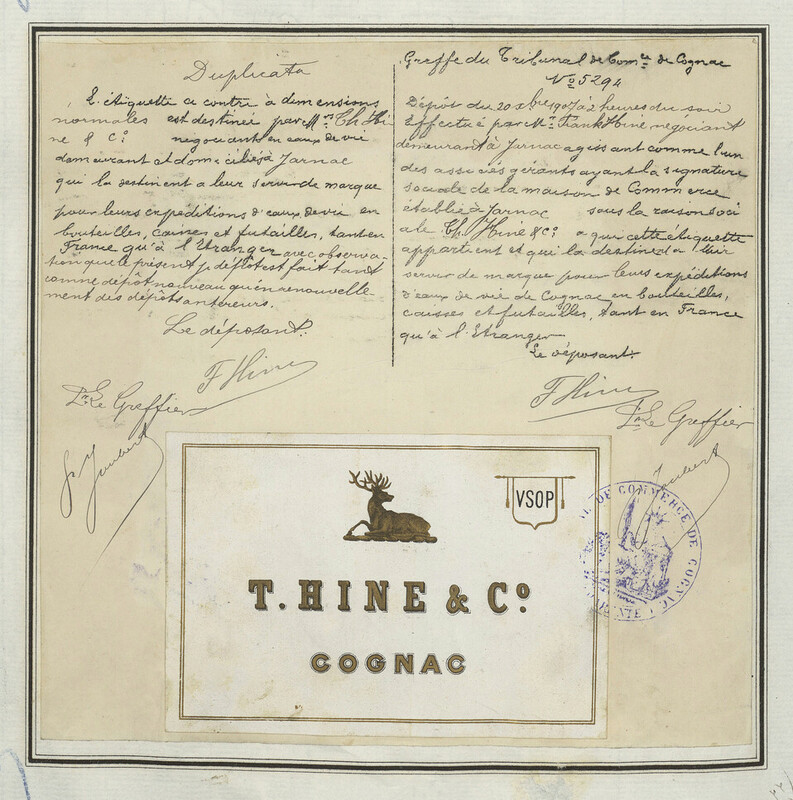 Duplicata
L'étiquette ci contre à dimensions
normales est destinée par Mrs Th Hi
ne & Co négociants en eaux de vie
demeurant et domiciliés à Jarnac
qui la destinent a leur servir de marque
pour leurs expéditions d'eaux de vie en
bouteilles, caisses et futailles, tant en
France qu'à l'Etranger avec observa-
tion que le présent dépôt est fait tant
comme dépôt nouveau qu'en renouvelle-
ment des dépôts antérieurs.
Le déposant.
F Hine
Le Greffier
Joubert
Greffe du Tribunal de Comce de Cognac
No 5294
Dépôt du 20 xbre 1907 à 2 heures du soir
Effectué par Mr Frank Hine négociant
demeurant à Jarnac agissant comme l'un
des associés gérants ayant la signature
sociale de la maison de Commerce
établie à Jarnac sous la raison soci
ale Th. Hine & Co. a qui cette étiquette
appartient et qui la destine à lui
servir de marque pour leurs expéditions
d'eaux de vie de Cognac en bouteilles,
caisses et futailles, tant en France
qu'à l'Etranger
Le déposant.
F Hine
Le Greffier
Joubert
VSOP
T. HINE & Co.
COGNAC
DE COMMERCE DE COGNAC